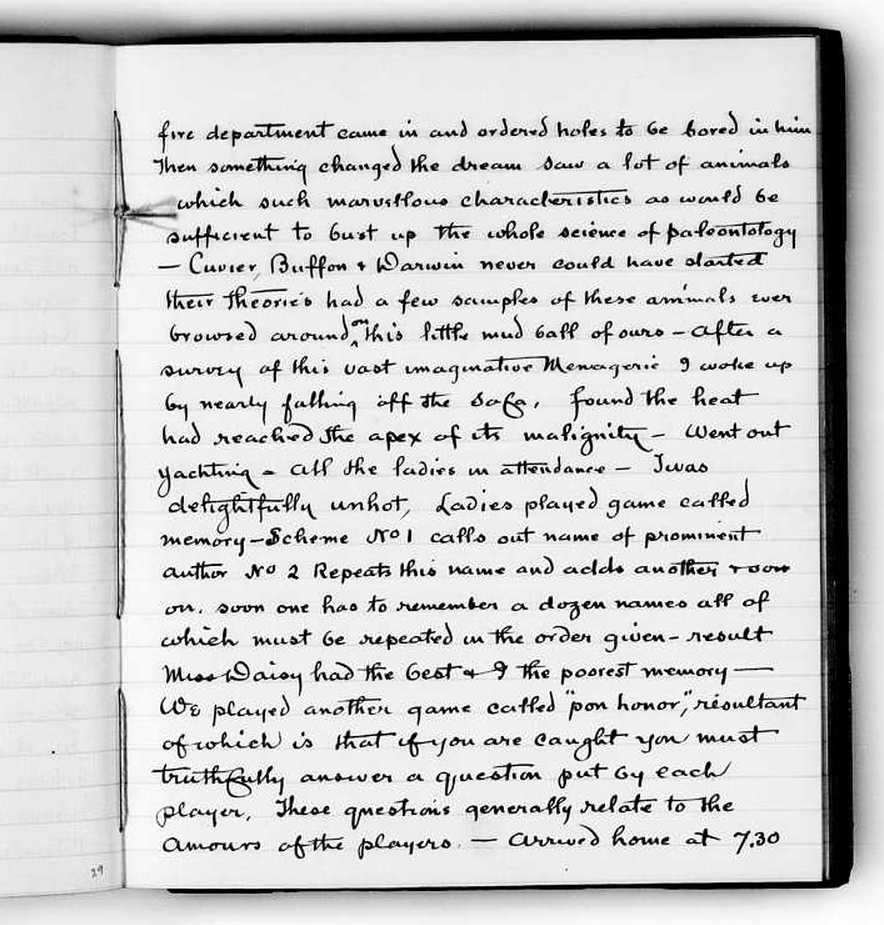 fire department came in and ordered holes to be bored in him
Then something changed the dream saw a lot of animals
which such marvellous characteristics as would be
sufficient to bust up the whole science of paleontology
— Cuvier, Buffon & Darwin never could have started
their theories had a few samples of these animals ever
browsed around on this little mud ball of ours — After a
survey of this vast imaginative Menagerie I woke up
by nearly falling off the sofa, found the heat
had reached the apex of its malignity — Went out
yachting — all the ladies in attendance — Twas
delightfully unhot, Ladies played game called
memory — Scheme No 1 calls out name of prominent
author No 2 Repeats this name and adds another & soon
on. soon one has to remember a dozen names all of
which must be repeated in the order given — result
Miss Daisy had the best & I the poorest memory —
We played another game called "pon honor", resultant
of which is that if you are caught you must
truthfully answer a question put by each
player, These questions generally relate to the
Amours of the players. — arrived home at 7.30
29